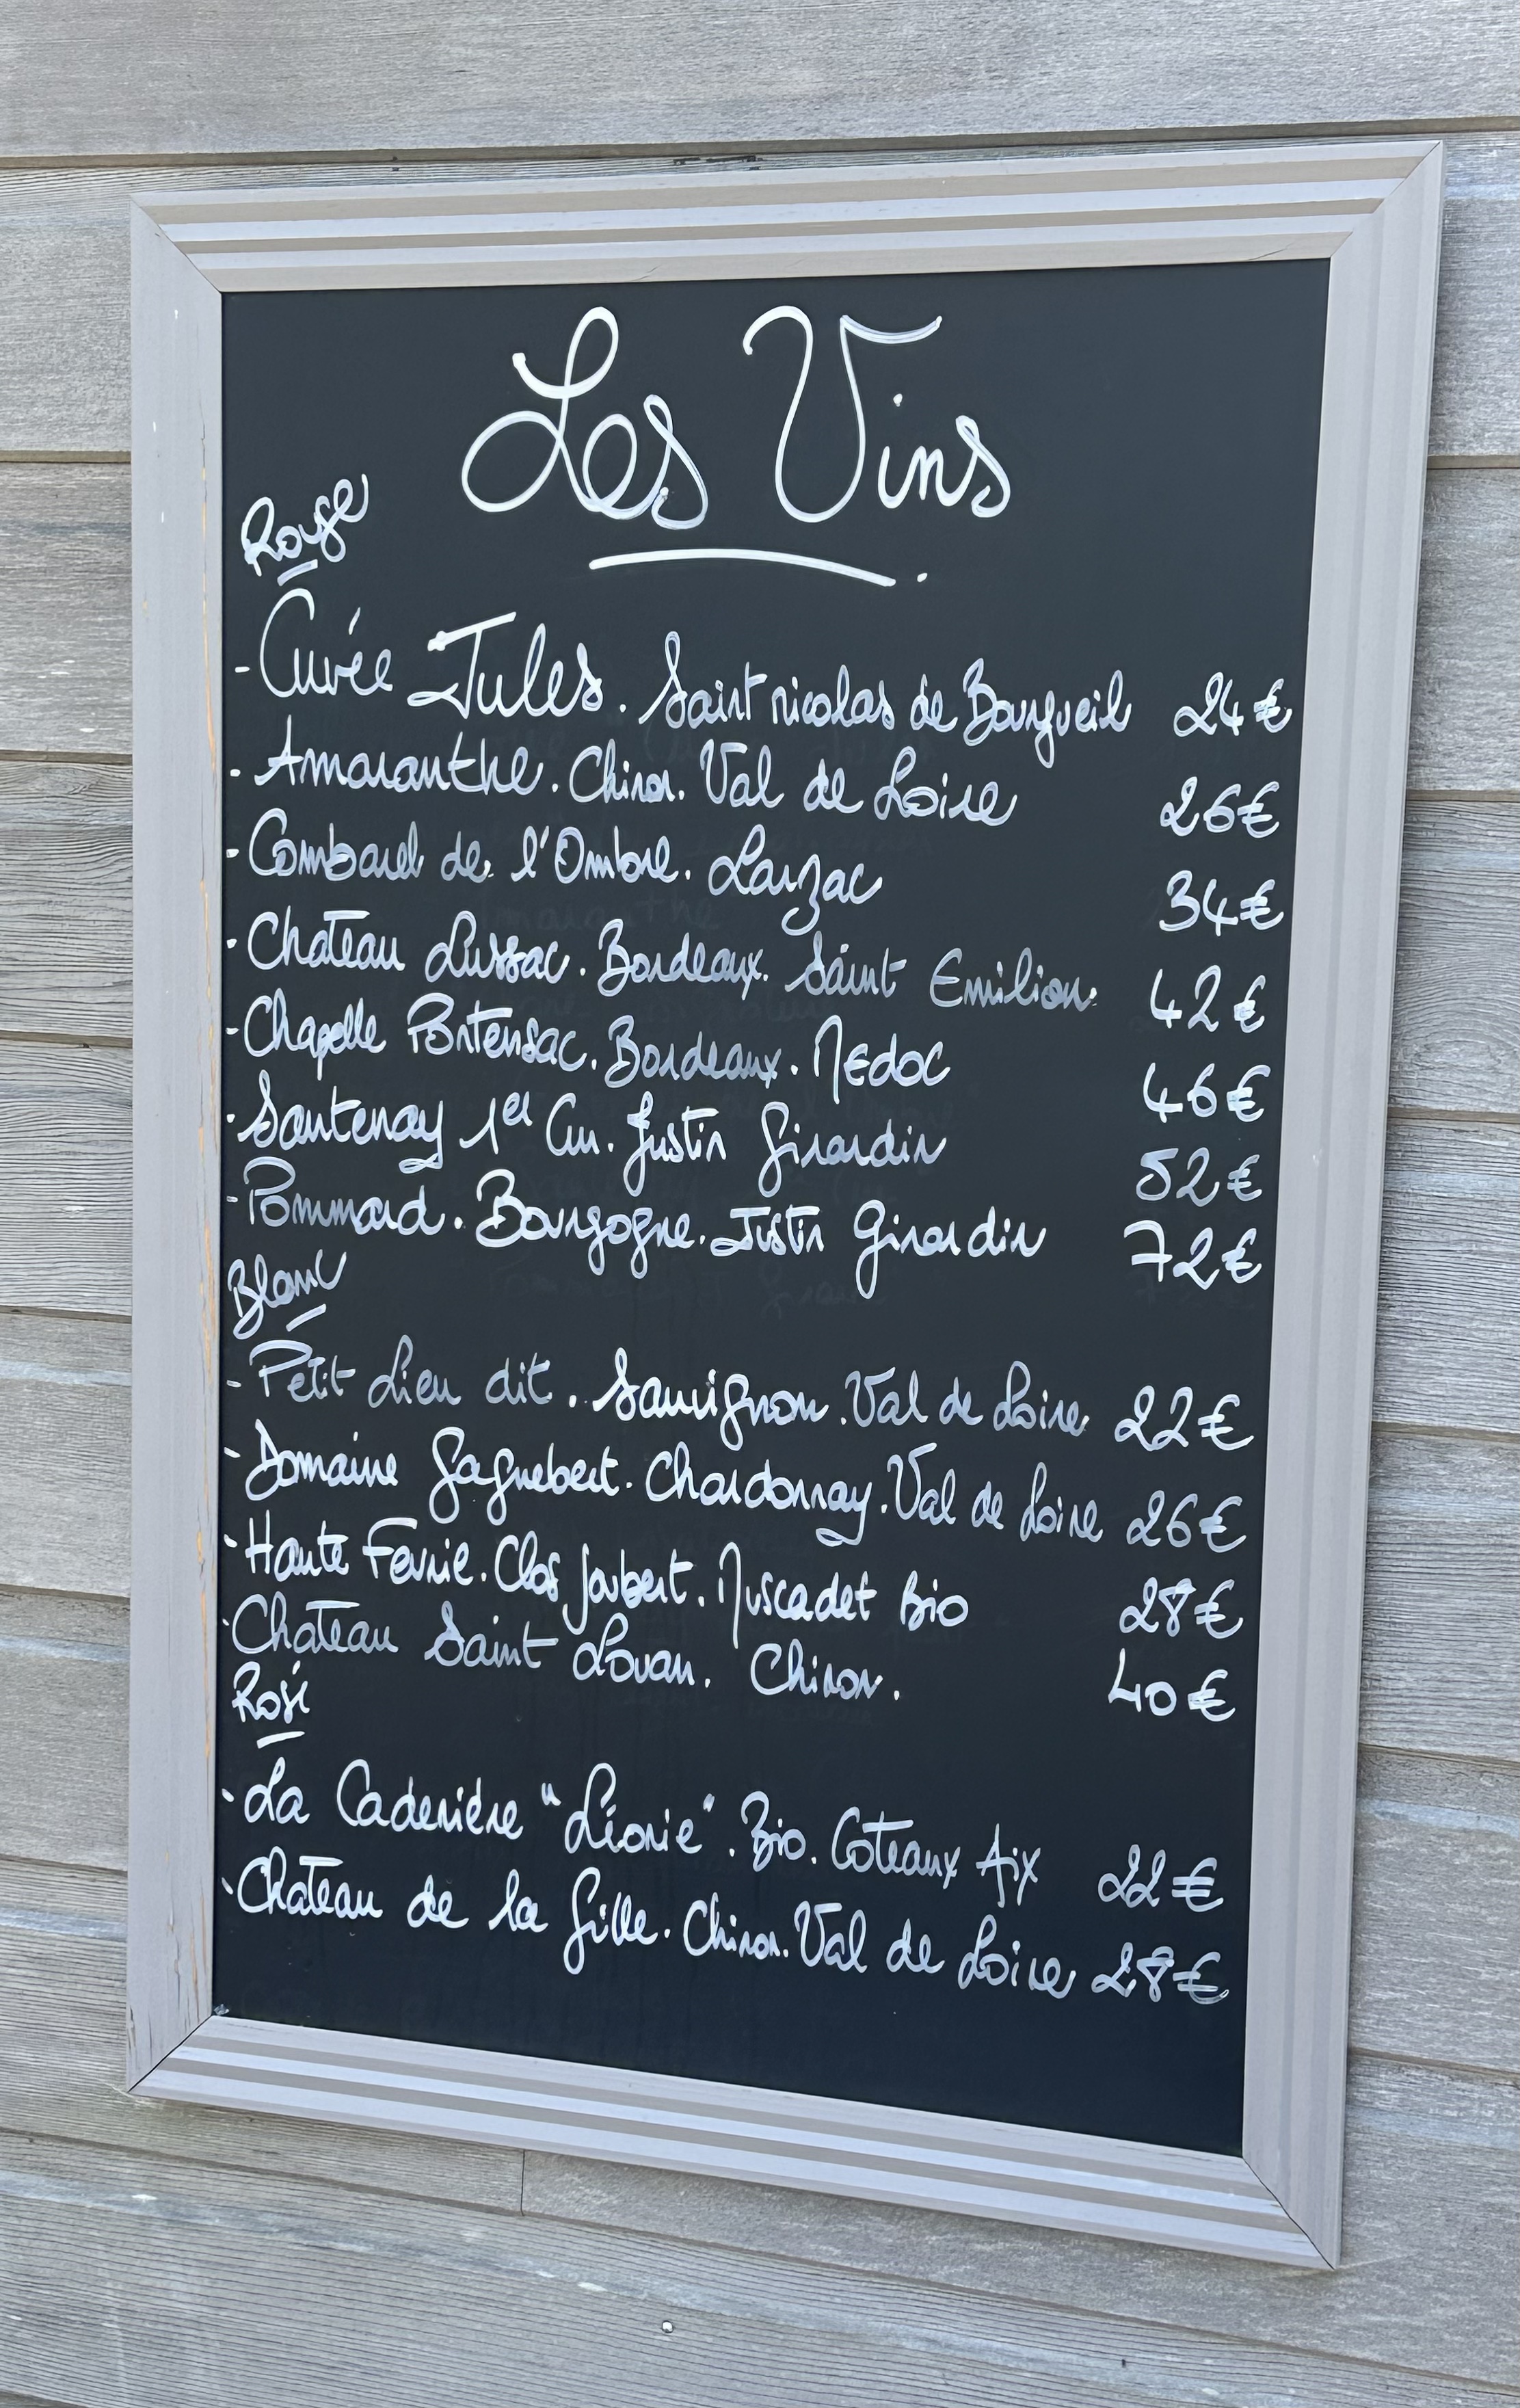 Les Vins
Rouge
- Cuvée Jules. Saint nicolas de Bourgueil 24€
- Amaranthe. Chinon. Val de Loire 26€
- Combarel de l'Ombre. Larzac 34€
- Chateau Lussac. Bordeaux. Saint Emilion. 42€
- Chapelle Pontensac. Bordeaux. Medoc 46€
- Santenay 1er Cru. Justin Girardin 52€
- Pommard. Bourgogne. Justin Girardin 72€
Blanc
- Petit Lieu dit. Sauvignon. Val de Loire 22€
- Domaine Gagnebert. Chardonnay. Val de Loire 26€
- Haute Fevrie. Clos Joubert. Muscadet Bio 28€
- Chateau Saint Louan. Chinon. 40€
Rosé
- La Caderière "Léonie". Bio. Coteaux Aix 22€
- Chateau de la Gille. Chinon. Val de Loire 28€